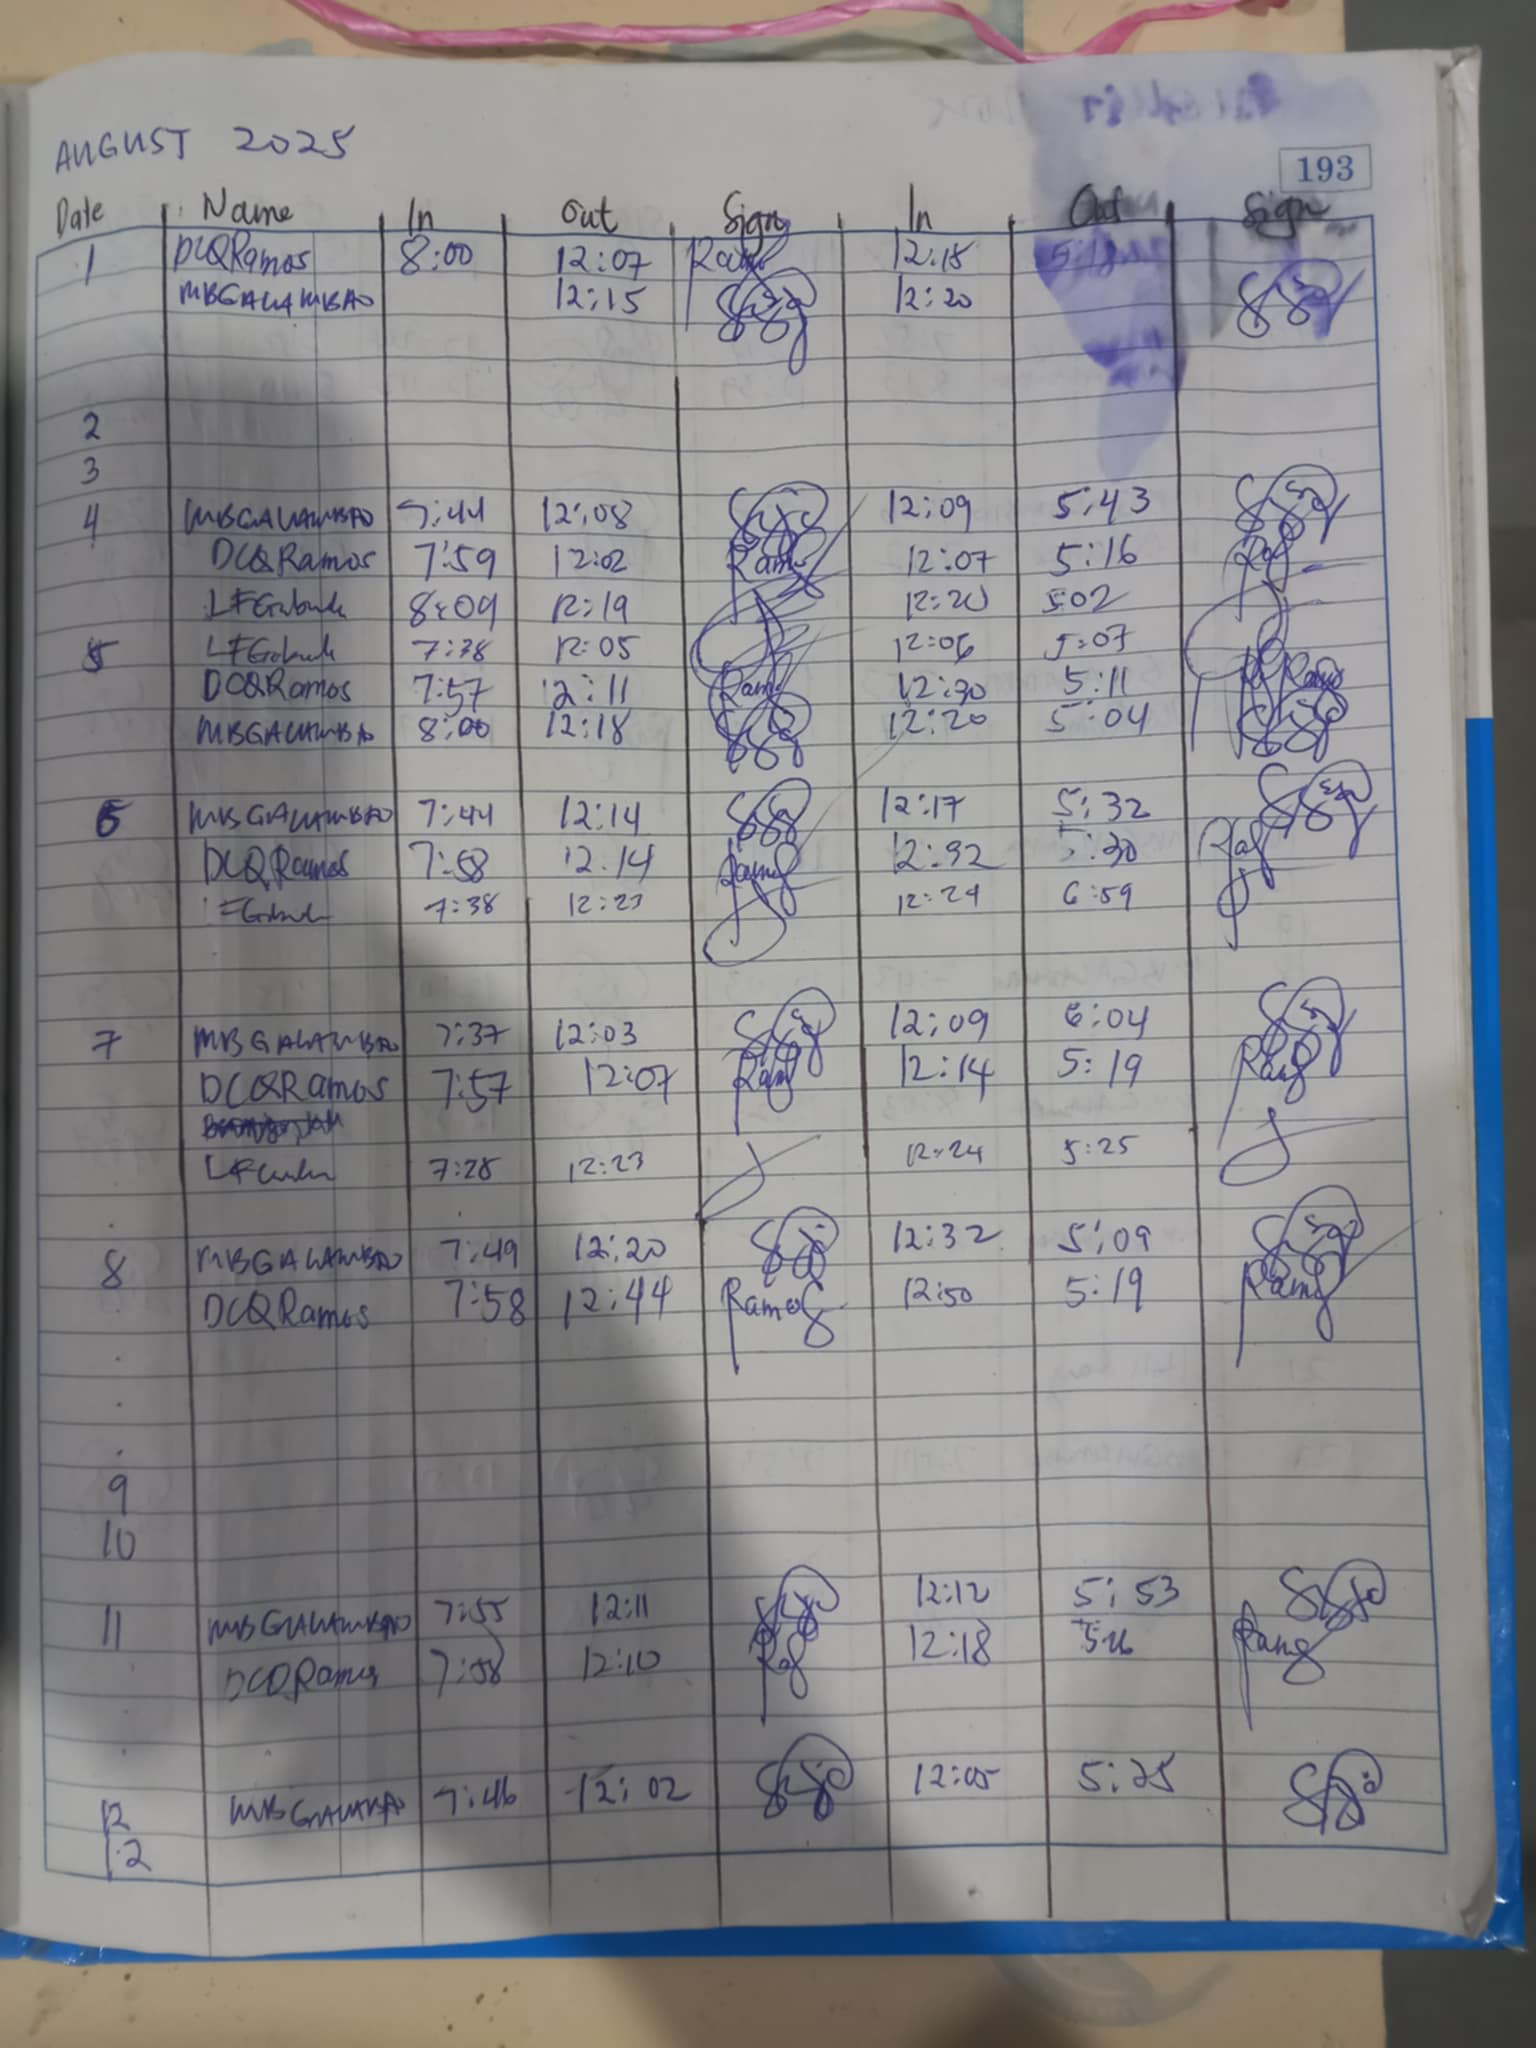 AUGUST 2025
193
Date Name In Out Sign In Out Sign
1 DCQRamos 8:00 12:07 12:18 5:18
MBGALAMBAO 12:15 12:20
2
3
4 MBGALAMBAO 7:44 12:08 12:09 5:43
DCQRamos 7:59 12:02 12:07 5:16
8:09 12:19 12:20 5:02
5 7:38 12:05 12:06 5:07
DCQRamos 7:57 12:11 12:30 5:11
MBGALAMBAO 8:00 12:18 12:20 5:04
6 MBGALAMBAO 7:44 12:14 12:17 5:32
DCQRamos 7:58 12.14 12:32 5:30
7:38 12:23 12:24 6:59
7 MBGALAMBAO 7:37 12:03 12:09 6:04
DCQRamos 7:57 12:07 12:14 5:19
7:28 12:23 12:24 5:25
8 MBGALAMBAO 7:49 12:20 12:32 5:09
DCQRamos 7:58 12:44 Ramos 12:50 5:19
9
10
11 MBGALAMBAO 7:55 12:11 12:12 5:53
DCQRamos 7:58 12:10 12:18
12 MBGALAMBAO 7:46 12:02 12:05 5:25
12